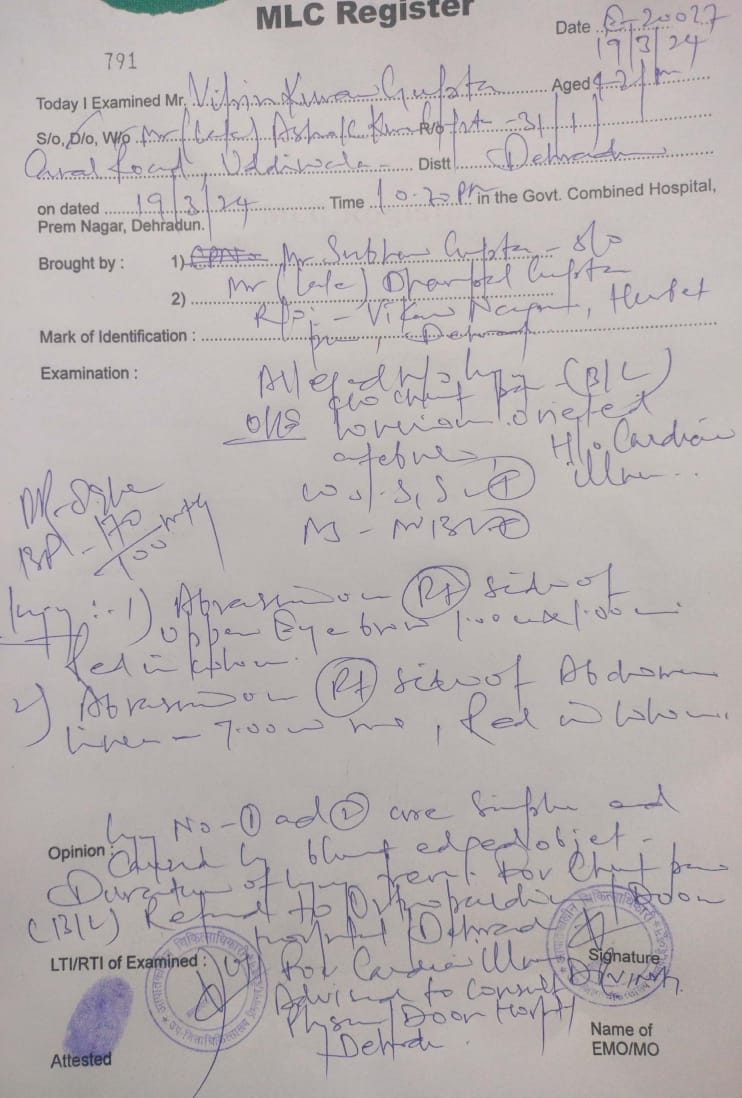 MLC Register
Date
19/3/24
791
Today I Examined Mr. Vipin Kumar Gupta Aged 42
S/o, D/o, W/o Mr (Late) Ashok Kumar Gupta R/o - 31/1
Road, Distt Dehradun
on dated 19/3/24 Time 10.20 Pm in the Govt. Combined Hospital,
Prem Nagar, Dehradun.
Brought by : 1) Mr Gupta - S/o
2) Mr (Late) Gupta
R/o :- Nagar,
Mark of Identification :
Examination : Alleged H/o Injury
c/o Chest pain - (B/L)
O/E Conscious oriented
afebrile H/o Cardiac
illness..
CVS - S1 S2 +
BP - 170/100 mmHg
Injury :- 1) Abrasion on (Rt) side of
upper Eye brow 1.00cm x 1.00cm.
Red in Colour.
2) Abrasion on (Rt) side of Abdomen
linear - 7.00cm, Red in Colour.
Injury No - (1) and (2) are Simple and
Opinion : Caused by blunt edged object -
Duration of injury fresh. For Chest pain
(B/L) Referred to Orthopaedician Doon
Hospital Dehradun
LTI/RTI of Examined : For Cardiac illness Signature
Advised to Consult
Physician Doon Hospital
Dehradun.
Attested
Name of
EMO/MO